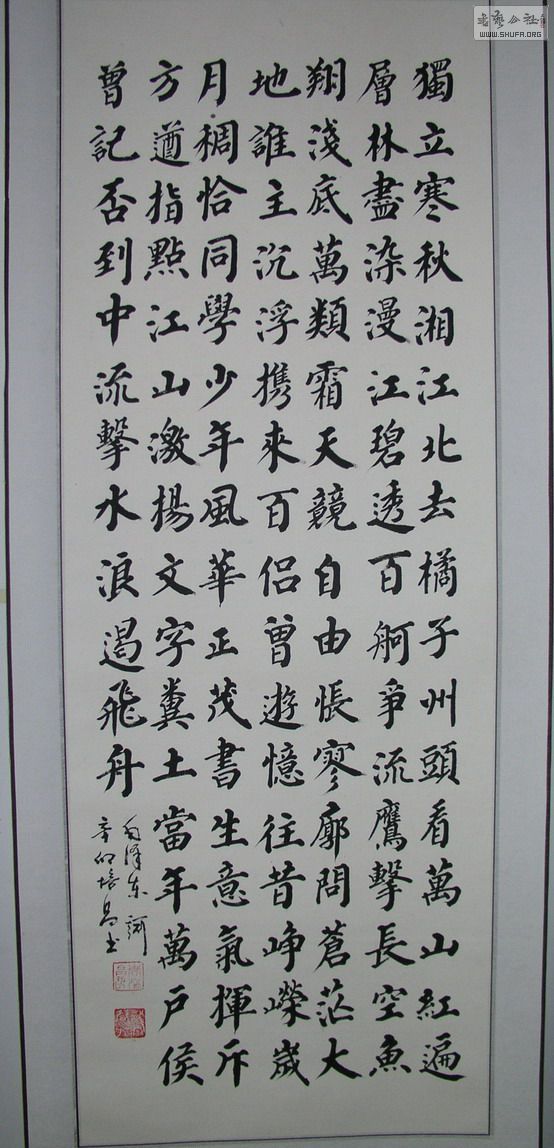 獨立寒秋湘江北去橘子州頭看萬山紅遍
層林盡染漫江碧透百舸爭流鷹擊長空魚
翔淺底萬類霜天競自由悵寥廓問蒼茫大
地誰主沉浮携來百侶曾遊憶往昔崢嶸歲
月稠恰同學少年風華正茂書生意氣揮斥
方遒指點江山激揚文字糞土當年萬户侯
曾記否到中流擊水浪遏飛舟
毛泽东词
辛卯培昌书
书艺公社
WWW.SHUFA.ORG